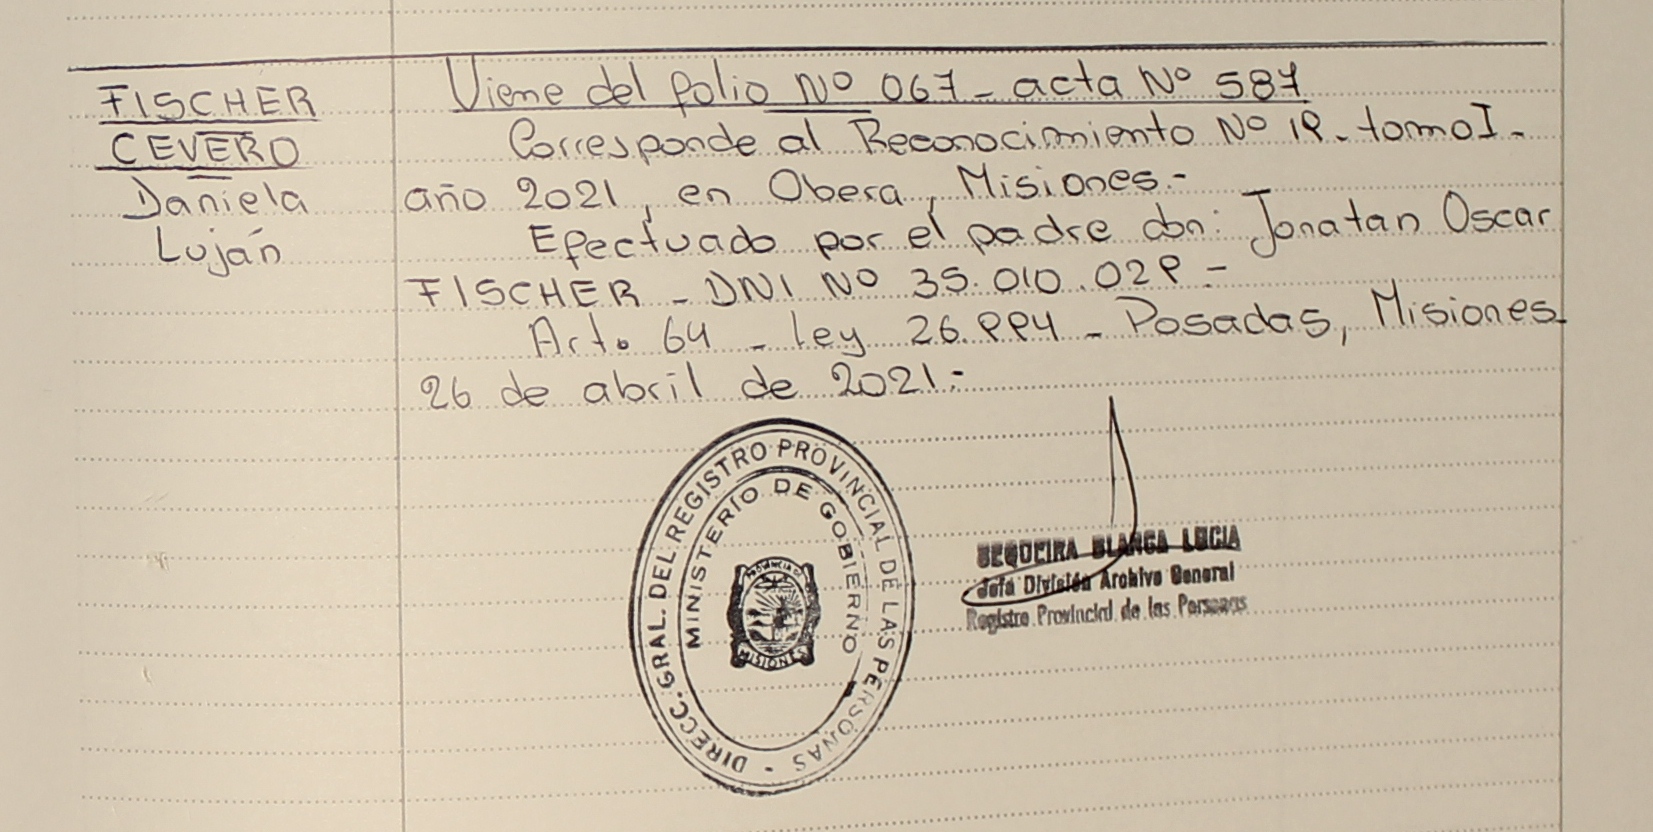 FISCHER
CEVERO
Daniela
Luján
Viene del folio Nº 067 - acta Nº 587
Corresponde al Reconocimiento Nº 19 - tomo I -
año 2021, en Obera, Misiones.-
Efectuado por el padre don: Jonatan Oscar
FISCHER - DNI Nº 35.010.029 -
Art. 64 - ley 26.994 - Posadas, Misiones
26 de abril de 2021.-
DIRECC. GRAL. DEL REGISTRO PROVINCIAL DE LAS PERSONAS -
MINISTERIO DE GOBIERNO
PROVINCIA DE
MISIONES
SEQUEIRA BLANCA LUCIA
Jefa División Archivo General
Registro Provincial de las Personas